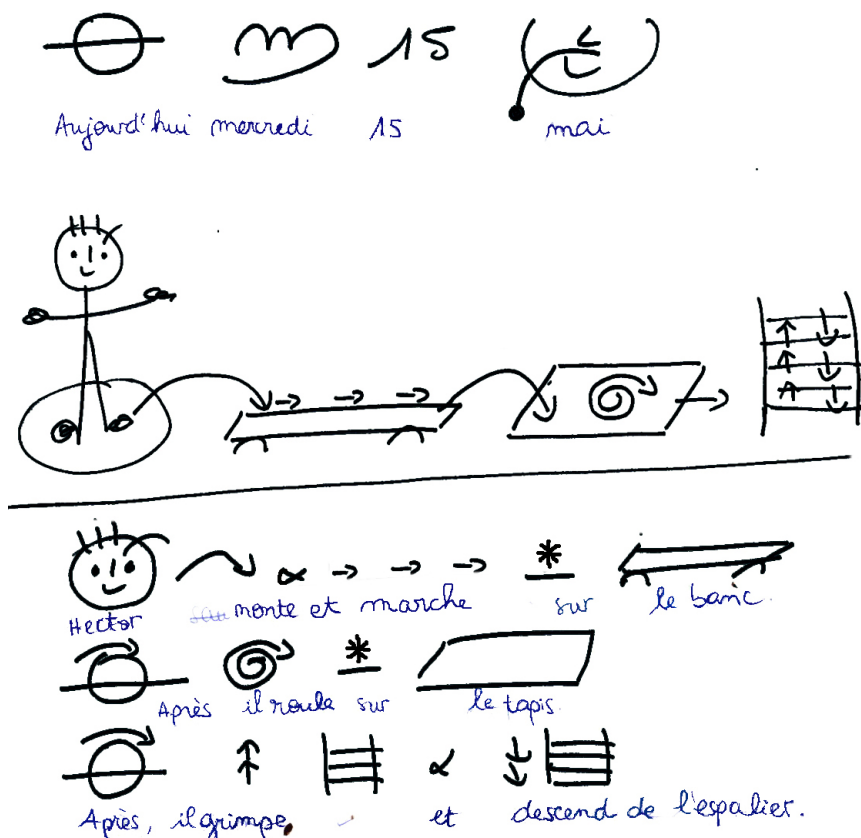 15
Aujourd'hui mercredi 15 mai
Hector monte et marche sur le banc.
Après il roule sur le tapis.
Après, il grimpe, et descend de l'espalier.